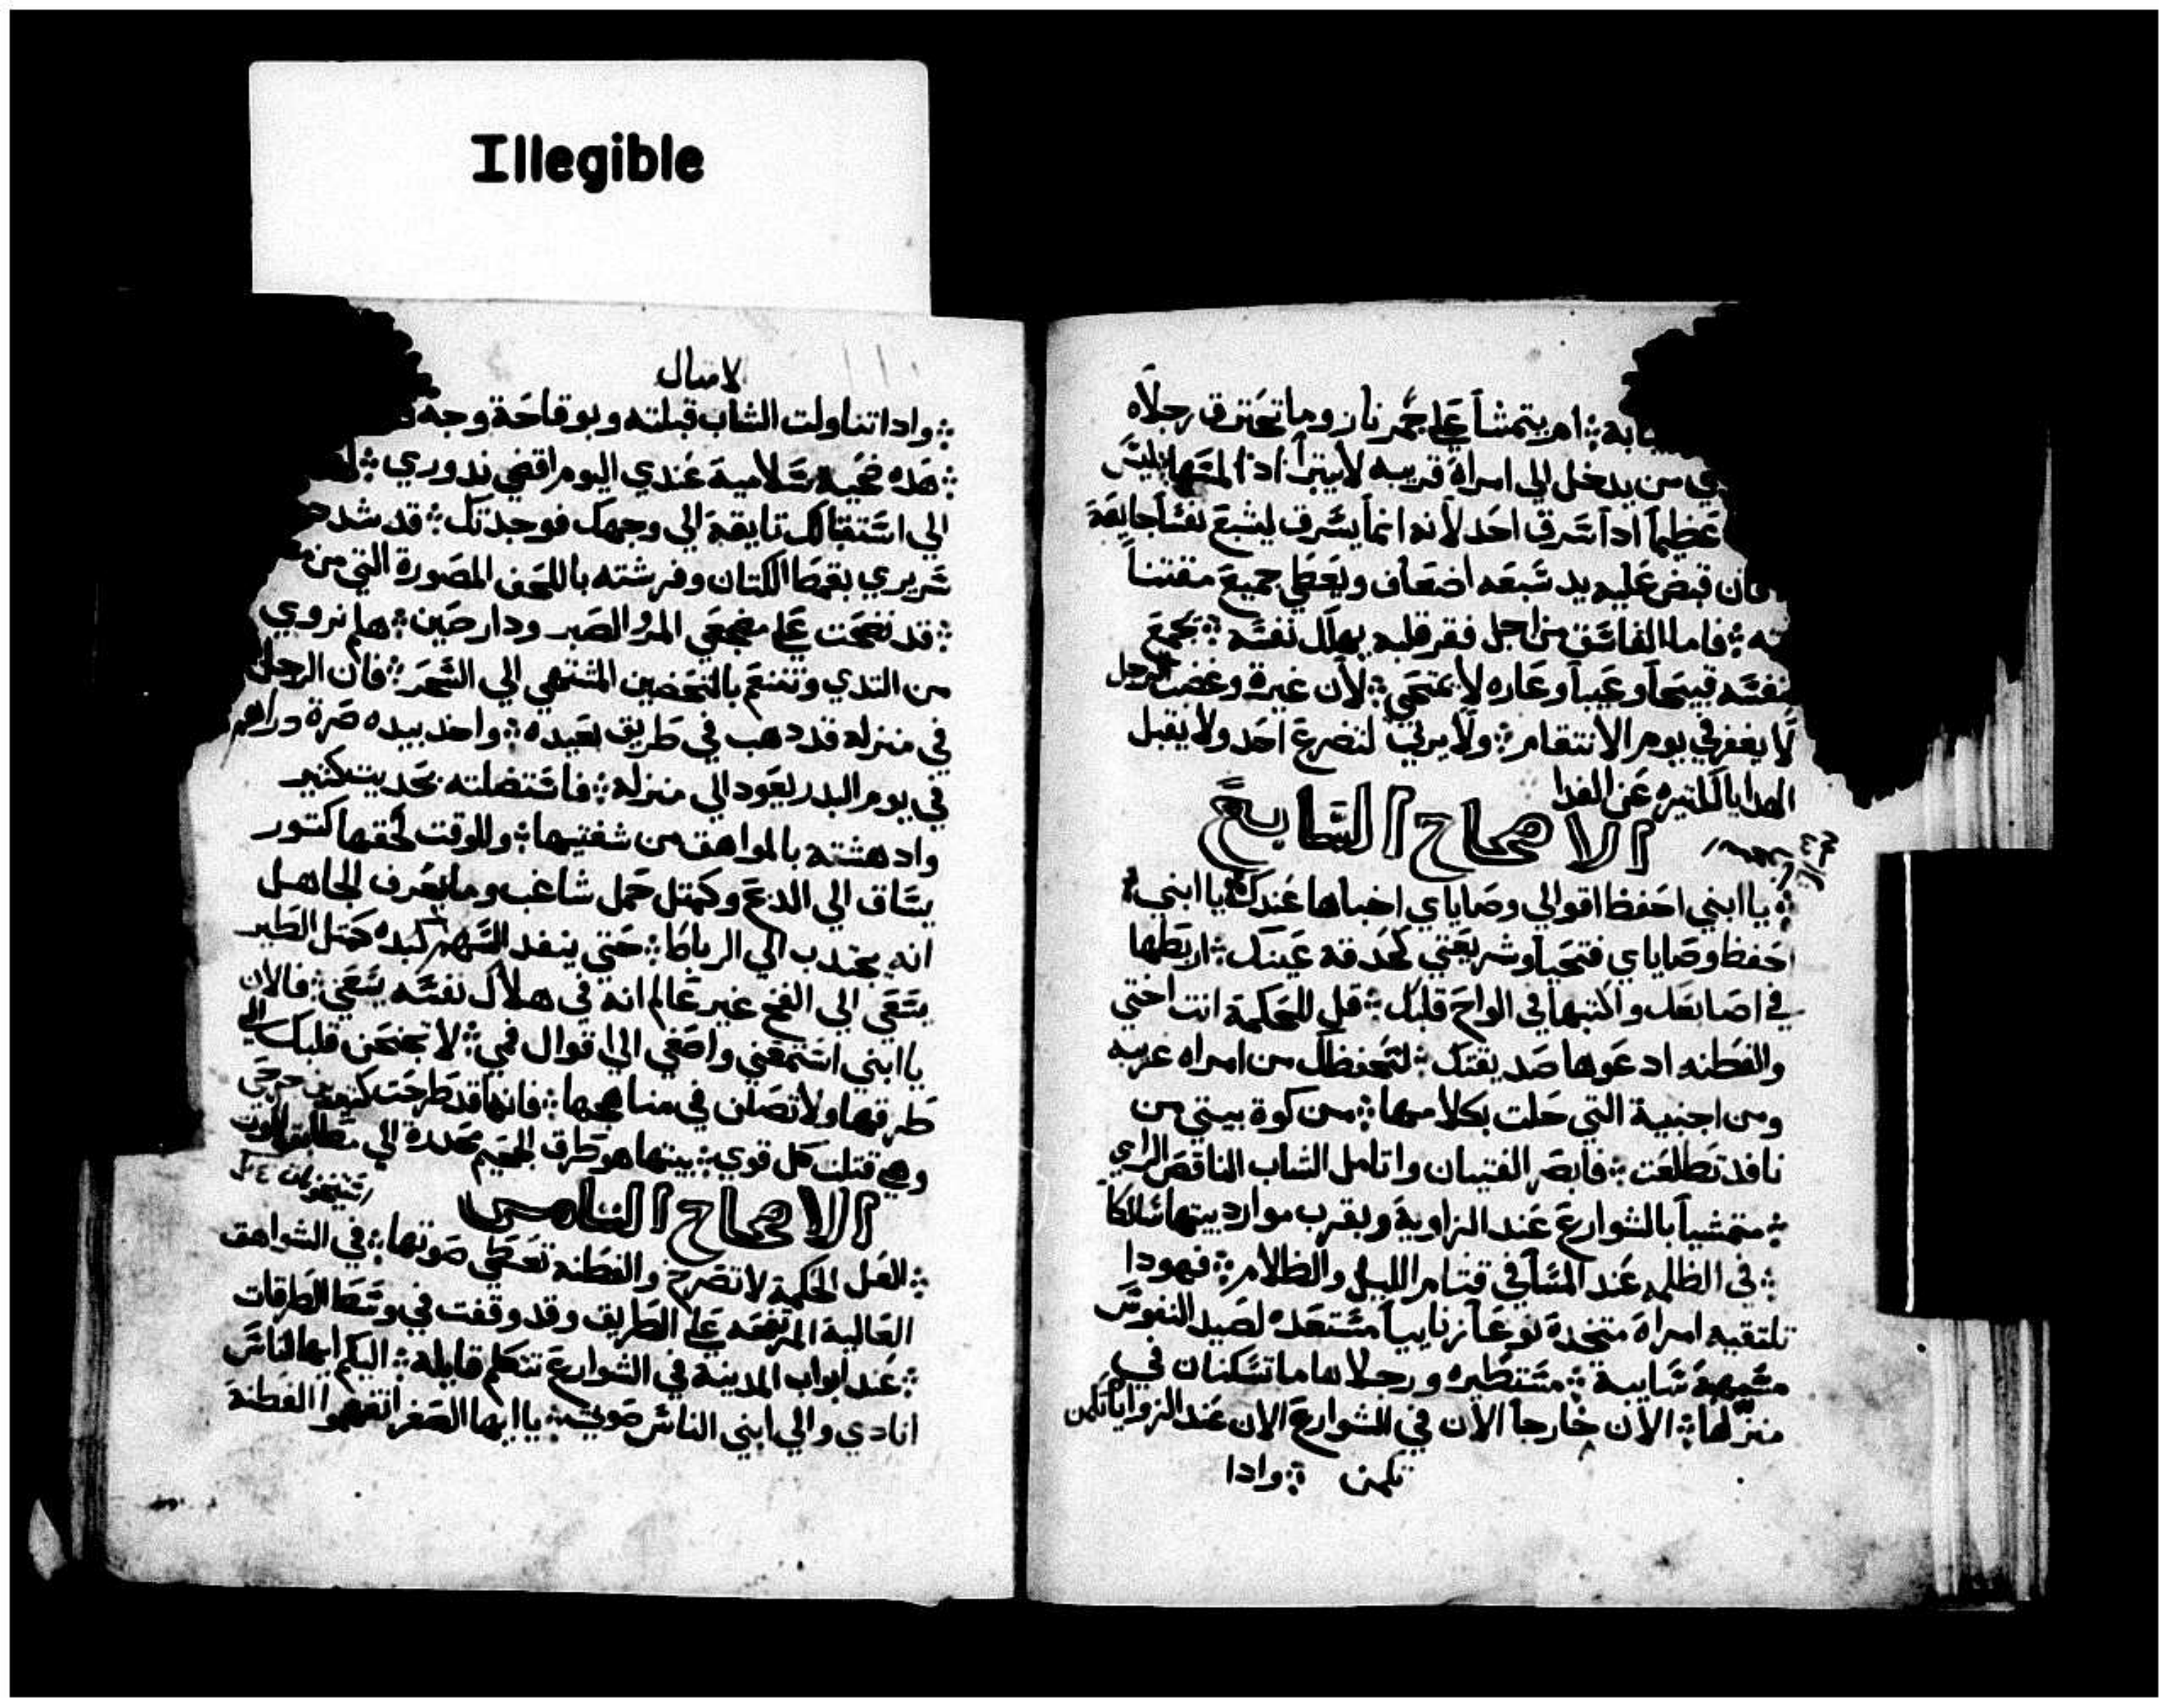 Illegible
ـابه ܀ ام يتمشا علي جمر نار وما تحترق رجلاه
من يدخل الي امراة قريبه لا يتبرا اذا لمسها ܀ ليس
عظيماً اذا سرق احد لانه انما يسرق ليشبع نفساً جايعة
فان قبض عليه يد سبعه اضعاف ويعطي جميع مقتنا
ته ܀ فاما الفاسق من اجل فقر قلبه يهلك نفسه ܀ يجمع
لنفسه قبيحاً وعيباً وعاره لا يمتحي ܀ لان غيرة وغضب الرجل
لا يغفر في يوم الانتقام ܀ ولا يرتي لتضرع احد ولا يقبل
الهدايا الكتيره عن الفدا
الاصحاح السابع
܀ يا ابني احفظ اقوالي وصاياي اخباها عندك ܀ يا ابني
احفظ وصاياي فتحيا وشريعتي كحدقة عينك ܀ اربطها
في اصابعك واكتبها في الواح قلبك ܀ قل للحكمة انت اختي
والفطنه ادعوها صديقتك ܀ لتحفظك من امراه غريبه
ومن اجنبية التي حلت بكلامها ܀ من كوة بيتي من
نافد تطلعت ܀ فابصر الفتيان واتامل الشاب الناقص الراي
܀ متمشياً بالشوارع عند الزاوية وبقرب موارد بيتها سالكا
܀ في الظلمه عند المسا في قتام الليل والظلام ܀ فهودا
تلتقيه امراة متخدة نوعاً زنايياً مستعده لصيد النفوس
مشبهة سايبة ܀ مستطيره ورجلاها ما تسكنان في
منزلها ܀ الان خارجاً الان في الشوارع الان عند الزوايا تكمن
تكمن ܀ وادا
لامتال
܀ وادا تناولت الشاب قبلته وبوقاحة وجه
܀ هده ضحية سلامية عندي اليوم اقضي ندوري ܀
الي استقبالك تايقة الي وجهك فوجدتك ܀ قد شدد
سريري بقمط الكتان وفرشته باللحف المصورة التي من
܀ قد نضحت علي مضجعي المر والصبر ودارصين ܀ هلم نروي
من التدي ونتنعم بالتحضين المشتهي الي السحر ܀ فان الرجل
في منزله قد دهب في طريق بعيده ܀ واخد بيده صرة دراهم
في يوم البدر يعود الي منزله ܀ فاستضلته بحديت كتير
وادهشته بالمواهق من شفتيها ܀ وللوقت لحقها كتور
يساق الي الدبح وكمتل حمل شاغب وما يعرف الجاهل
انه يجندب الي الرباط ܀ حتي ينفد السهم كبده كمتل الطير
يسعي الي الفخ غير عالم انه في هلاك نفسه يسعي ܀ فالان
يا ابني استمعني واصغي الي اقوال فمي ܀ لا تجنحن قلبك الي
طرقها ولا تضلن في مناهجها ܀ فانها قد طرحت كتيرين جرحي
وهي قتلت كل قوي ܀ بيتها هو طرق الجحيم محدرة الي مطابق الموت
الاصحاح التامن
܀ العل الحكمة لا تصرخ والفطنه تعطي صوتها ܀ في الشواهق
العالية المرتفعه علي الطريق وقد وقفت في وسط الطرقات
܀ عند ابواب المدينة في الشوارع تتكلم قايله ܀ اليكم ايها الناس
انادي والي ابني الناس صوتي ܀ يا ايها الصغر اتفهموا الفطنة